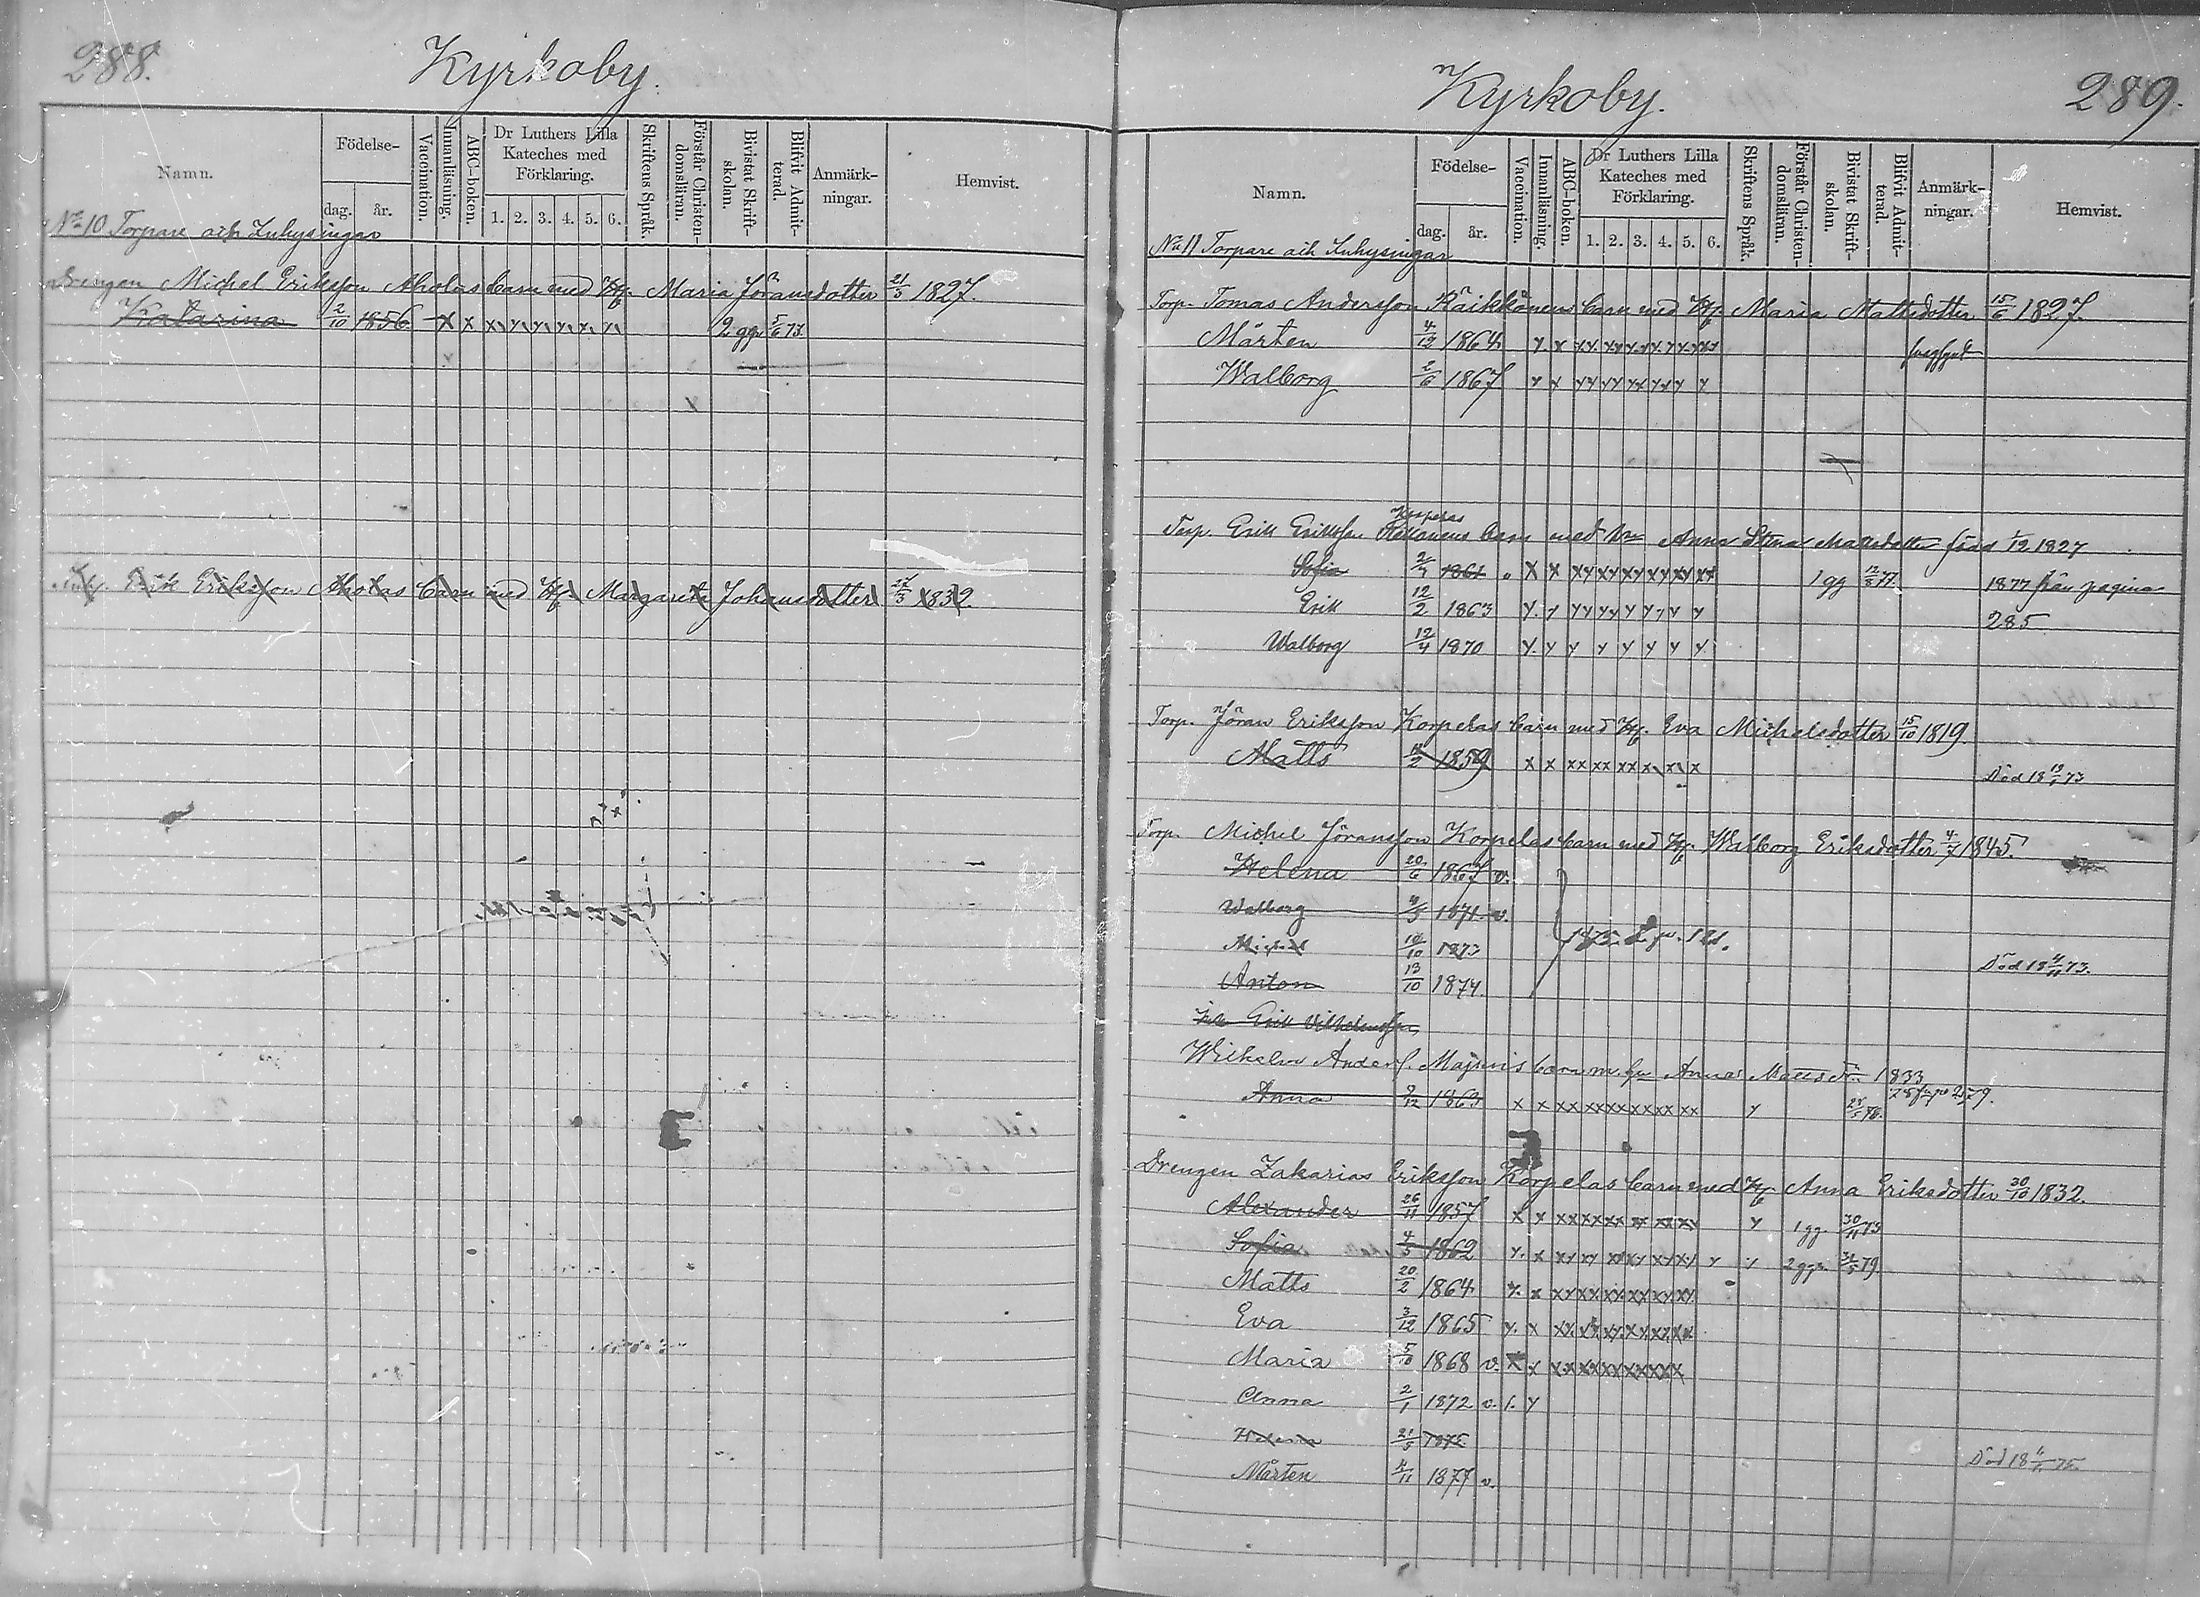 288.
Kyrkoby.
Namn.
Födelse-
dag.
år.
Vaccination.
Innanläsning.
ABC-boken.
Dr Luthers Lilla
Kateches med
Förklaring.
1. 2. 3. 4. 5. 6.
Skriftens Språk.
Förstår Christen-
domsläran.
Bivistat Skrift-
skolan.
Blifvit Admit-
terad.
Anmärk-
ningar.
Hemvist.
No 10 Torpare och Inhysingar
Drengen Michel Eriksson Aholas barn med H. Maria Jöransdotter 21/3 1827.
Katarina 2/10 1856 x x x x x x x x 2 ggr 5/6 73.
Inh. Erik Eriksson Aholas barn med H. Margareta Johansdotter 27/3 1832.
Kyrkoby.
289.
Namn.
Födelse-
dag.
år.
Vaccination.
Innanläsning.
ABC-boken.
Dr Luthers Lilla
Kateches med
Förklaring.
1. 2. 3. 4. 5. 6.
Skriftens Språk.
Förstår Christen-
domsläran.
Bivistat Skrift-
skolan.
Blifvit Admit-
terad.
Anmärk-
ningar.
Hemvist.
No 11 Torpare och Inhysingar
Torp. Tomas Andersson Räikkönens barn med H. Maria Mattsdotter 15/6 1827.
Mårten 4/12 1864
Walborg 2/6 1867
Korpelas
Torp. Erik Eriksson barn med Anna Stina Matsdotter född 1/12 1827
Sofia 2/4 1861 1 gg 12/5 77. 1877 från pagina
Erik 12/2 1863 285
Walborg 12/4 1870
Torp. Jöran Eriksson Korpelas barn med H. Eva Michelsdotter 15/10 1819.
Matts 1859 Död 18 73
Torp. Michel Jöransson Korpelas barn med H. Walborg Eriksdotter 4/7 1845.
Helena 20/6 1867 v.
Walborg 1871 v.
Michel 10/10 1873 1875 p. 121. Död 18 4/11 73.
Anton 13/10 1874.
Erik Vilhelmsson
Wilhelm Anders. barn m. hu Anna Mattsdr 1833
Anna 9/12 1863 279.
Drengen Zakarias Eriksson Korpelas barn med H. Anna Eriksdotter 30/10 1832.
Alexander 26/11 1857 1 gg. 30/11 73
Sofia 4/5 1862 2 ggr. 79.
Matts 20/2 1864
Eva 3/12 1865
Maria 5/10 1868 v.
Anna 2/1 1872 v.
21/5 1875 Död 18 75.
Mårten 4/11 1877 v.